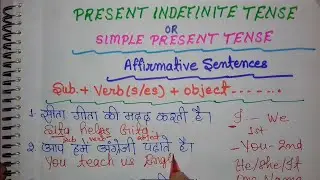 PRESENT INDEFINITE TENSE
OR
SIMPLE PRESENT TENSE
Affirmative Sentences
Sub. + Verb(s/es) + object.......
1. सीता गीता की मदद करती है। I - We
Sita helps Gita 1st
Sub verb object
2. आप हमें अंग्रेजी पढ़ाते हैं। - You - 2nd
You teach us Engl
He/She/It
Name